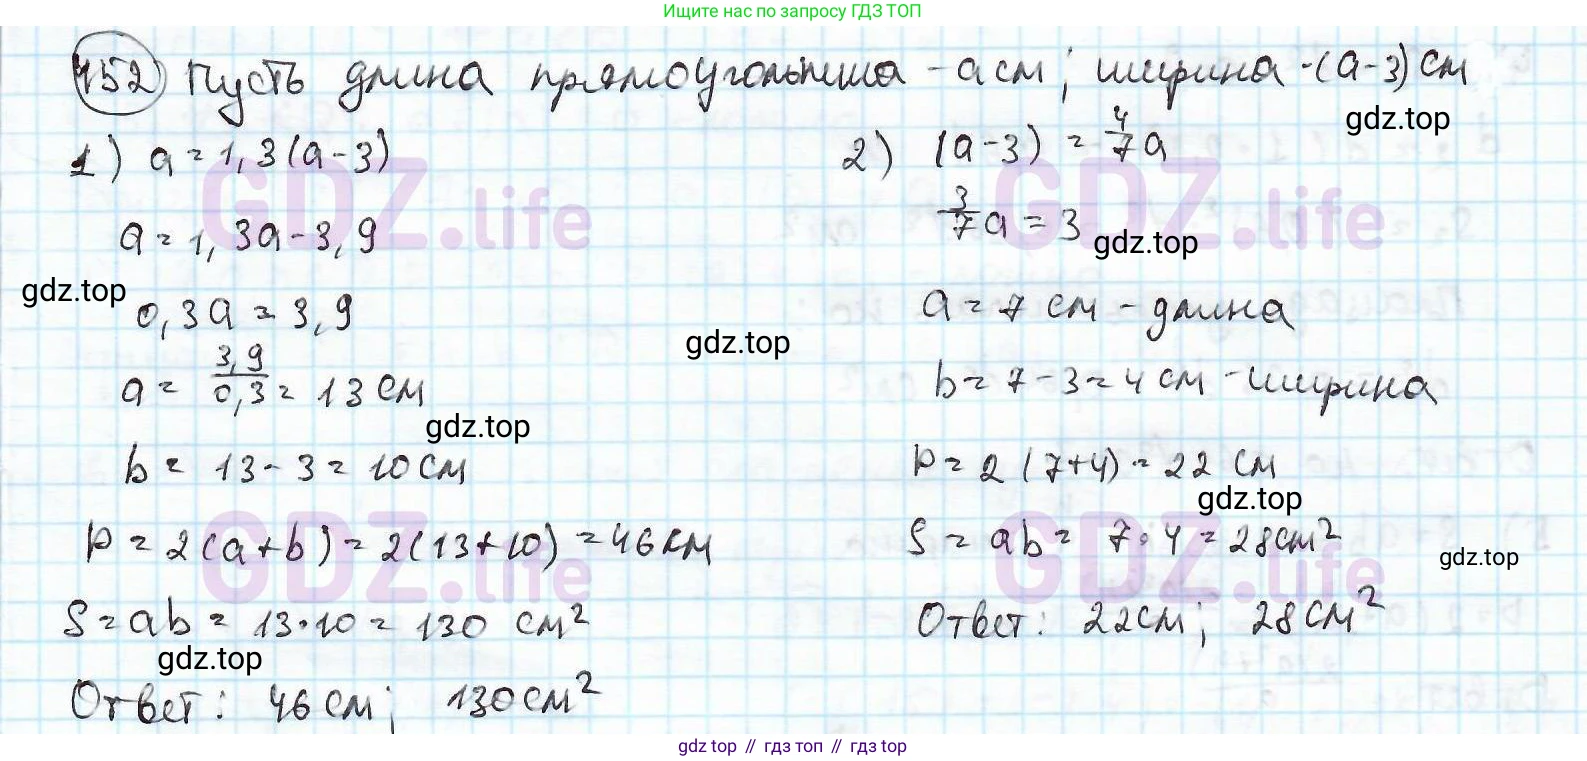 Ищите нас по запросу ГДЗ ТОП
152 Пусть длина прямоугольника - a см; ширина - (a-3) см
gdz.top
1) a = 1,3(a-3)
GDZ.life
a = 1,3a - 3,9
gdz.top
0,3a = 3,9
a = 3,9/0,3 = 13 см
gdz.top
b = 13 - 3 = 10 см
P = 2(a+b) = 2(13+10) = 46 см
GDZ.life
S = ab = 13·10 = 130 см²
gdz.top
Ответ: 46 см; 130 см²
gdz.top
2) (a-3) = 4/7 a
GDZ.life
3/7 a = 3
gdz.top
a = 7 см - длина
b = 7 - 3 = 4 см - ширина
P = 2(7+4) = 22 см
gdz.top
S = ab = 7·4 = 28 см²
gdz.top
GDZ.life
Ответ: 22 см; 28 см²
gdz top // гдз топ // гдз top